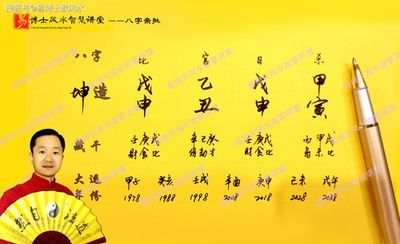 易 博士风水智慧讲堂 一一八字案批
八字 比 官 日 杀
坤造 戊申 乙丑 戊申 甲寅
藏干 壬庚戊 辛己癸 壬庚戊 丙甲戊
财食比 伤劫才 财食比 枭杀比
大运 甲子 癸亥 壬戌 辛酉 庚申 己未 戊午
年份 1978 1988 1998 2008 2018 2028 2038